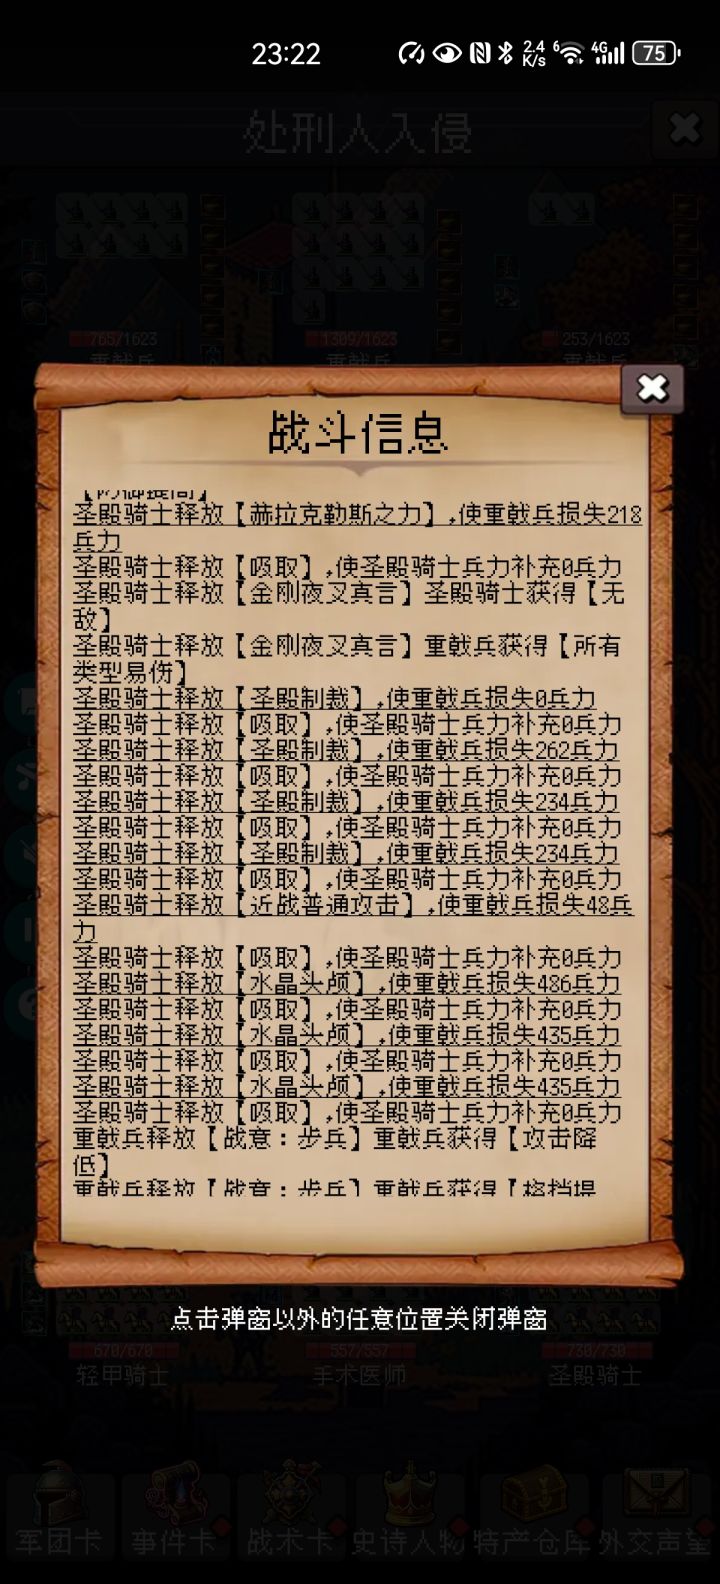 23:22
2.4
K/s
6
4G
75
处刑人入侵
765/1623
1309/1623
253/1623
重戟兵
重戟兵
重戟兵
战斗信息
【防御提高】
圣殿骑士释放【赫拉克勒斯之力】,使重戟兵损失218
兵力
圣殿骑士释放【吸取】,使圣殿骑士兵力补充0兵力
圣殿骑士释放【金刚夜叉真言】圣殿骑士获得【无
敌】
圣殿骑士释放【金刚夜叉真言】重戟兵获得【所有
类型易伤】
圣殿骑士释放【圣殿制裁】,使重戟兵损失0兵力
圣殿骑士释放【吸取】,使圣殿骑士兵力补充0兵力
圣殿骑士释放【圣殿制裁】,使重戟兵损失262兵力
圣殿骑士释放【吸取】,使圣殿骑士兵力补充0兵力
圣殿骑士释放【圣殿制裁】,使重戟兵损失234兵力
圣殿骑士释放【吸取】,使圣殿骑士兵力补充0兵力
圣殿骑士释放【圣殿制裁】,使重戟兵损失234兵力
圣殿骑士释放【吸取】,使圣殿骑士兵力补充0兵力
圣殿骑士释放【近战普通攻击】,使重戟兵损失48兵
力
圣殿骑士释放【吸取】,使圣殿骑士兵力补充0兵力
圣殿骑士释放【水晶头颅】,使重戟兵损失486兵力
圣殿骑士释放【吸取】,使圣殿骑士兵力补充0兵力
圣殿骑士释放【水晶头颅】,使重戟兵损失435兵力
圣殿骑士释放【吸取】,使圣殿骑士兵力补充0兵力
圣殿骑士释放【水晶头颅】,使重戟兵损失435兵力
圣殿骑士释放【吸取】,使圣殿骑士兵力补充0兵力
重戟兵释放【战意：步兵】重戟兵获得【攻击降
低】
重戟兵释放【战意：步兵】重戟兵获得【格挡提
点击弹窗以外的任意位置关闭弹窗
670/670
557/557
730/730
轻甲骑士
手术医师
圣殿骑士
军团卡
事件卡
战术卡
史诗人物
特产仓库
外交声望